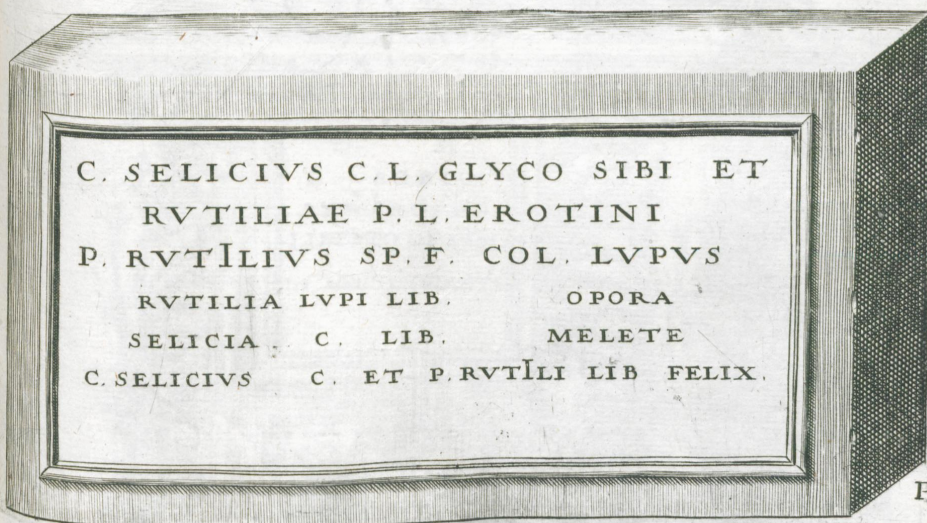 C. SELICIVS C. L. GLYCO SIBI ET
RVTILIAE P. L. EROTINI
P. RVTILIVS SP. F. COL. LVPVS
RVTILIA LVPI LIB. OPORA
SELICIA C. LIB. MELETE
C. SELICIVS C. ET P. RVTILI LIB FELIX.